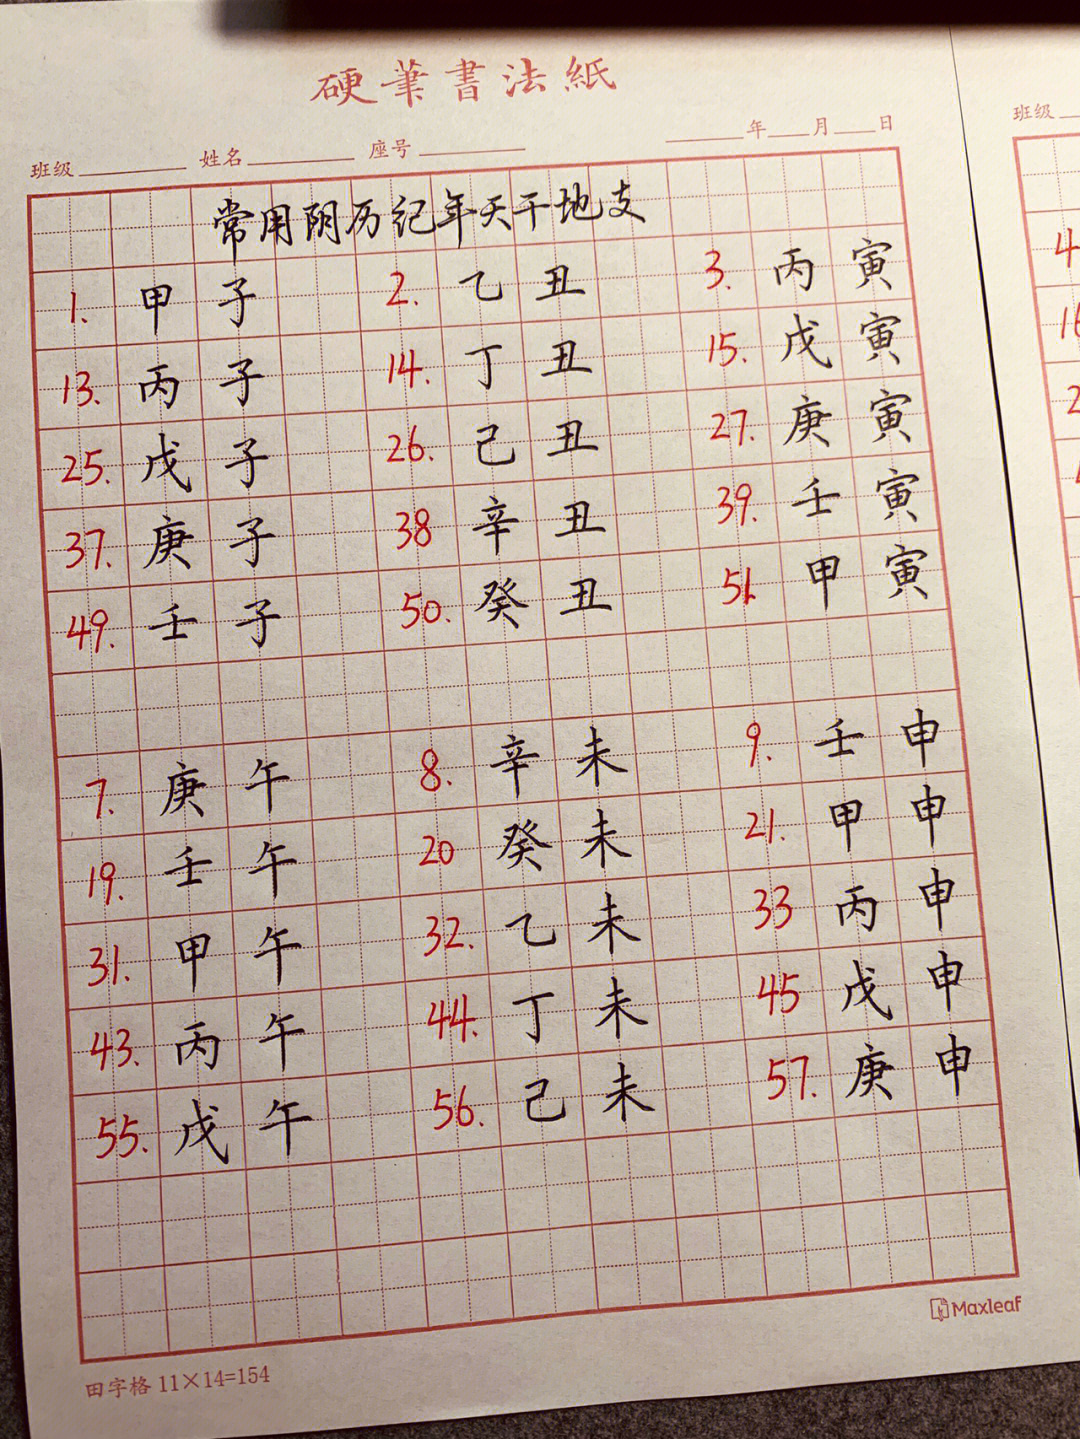 硬筆書法紙
班级 姓名 座号 年 月 日
常用阴历纪年天干地支
1. 甲子 2. 乙丑 3. 丙寅
13. 丙子 14. 丁丑 15. 戊寅
25. 戊子 26. 己丑 27. 庚寅
37. 庚子 38 辛丑 39. 壬寅
49. 壬子 50. 癸丑 51. 甲寅
7. 庚午 8. 辛未 9. 壬申
19. 壬午 20 癸未 21. 甲申
31. 甲午 32. 乙未 33 丙申
43. 丙午 44. 丁未 45 戊申
55. 戊午 56. 己未 57. 庚申
Maxleaf
田字格 11×14=154
班级
4